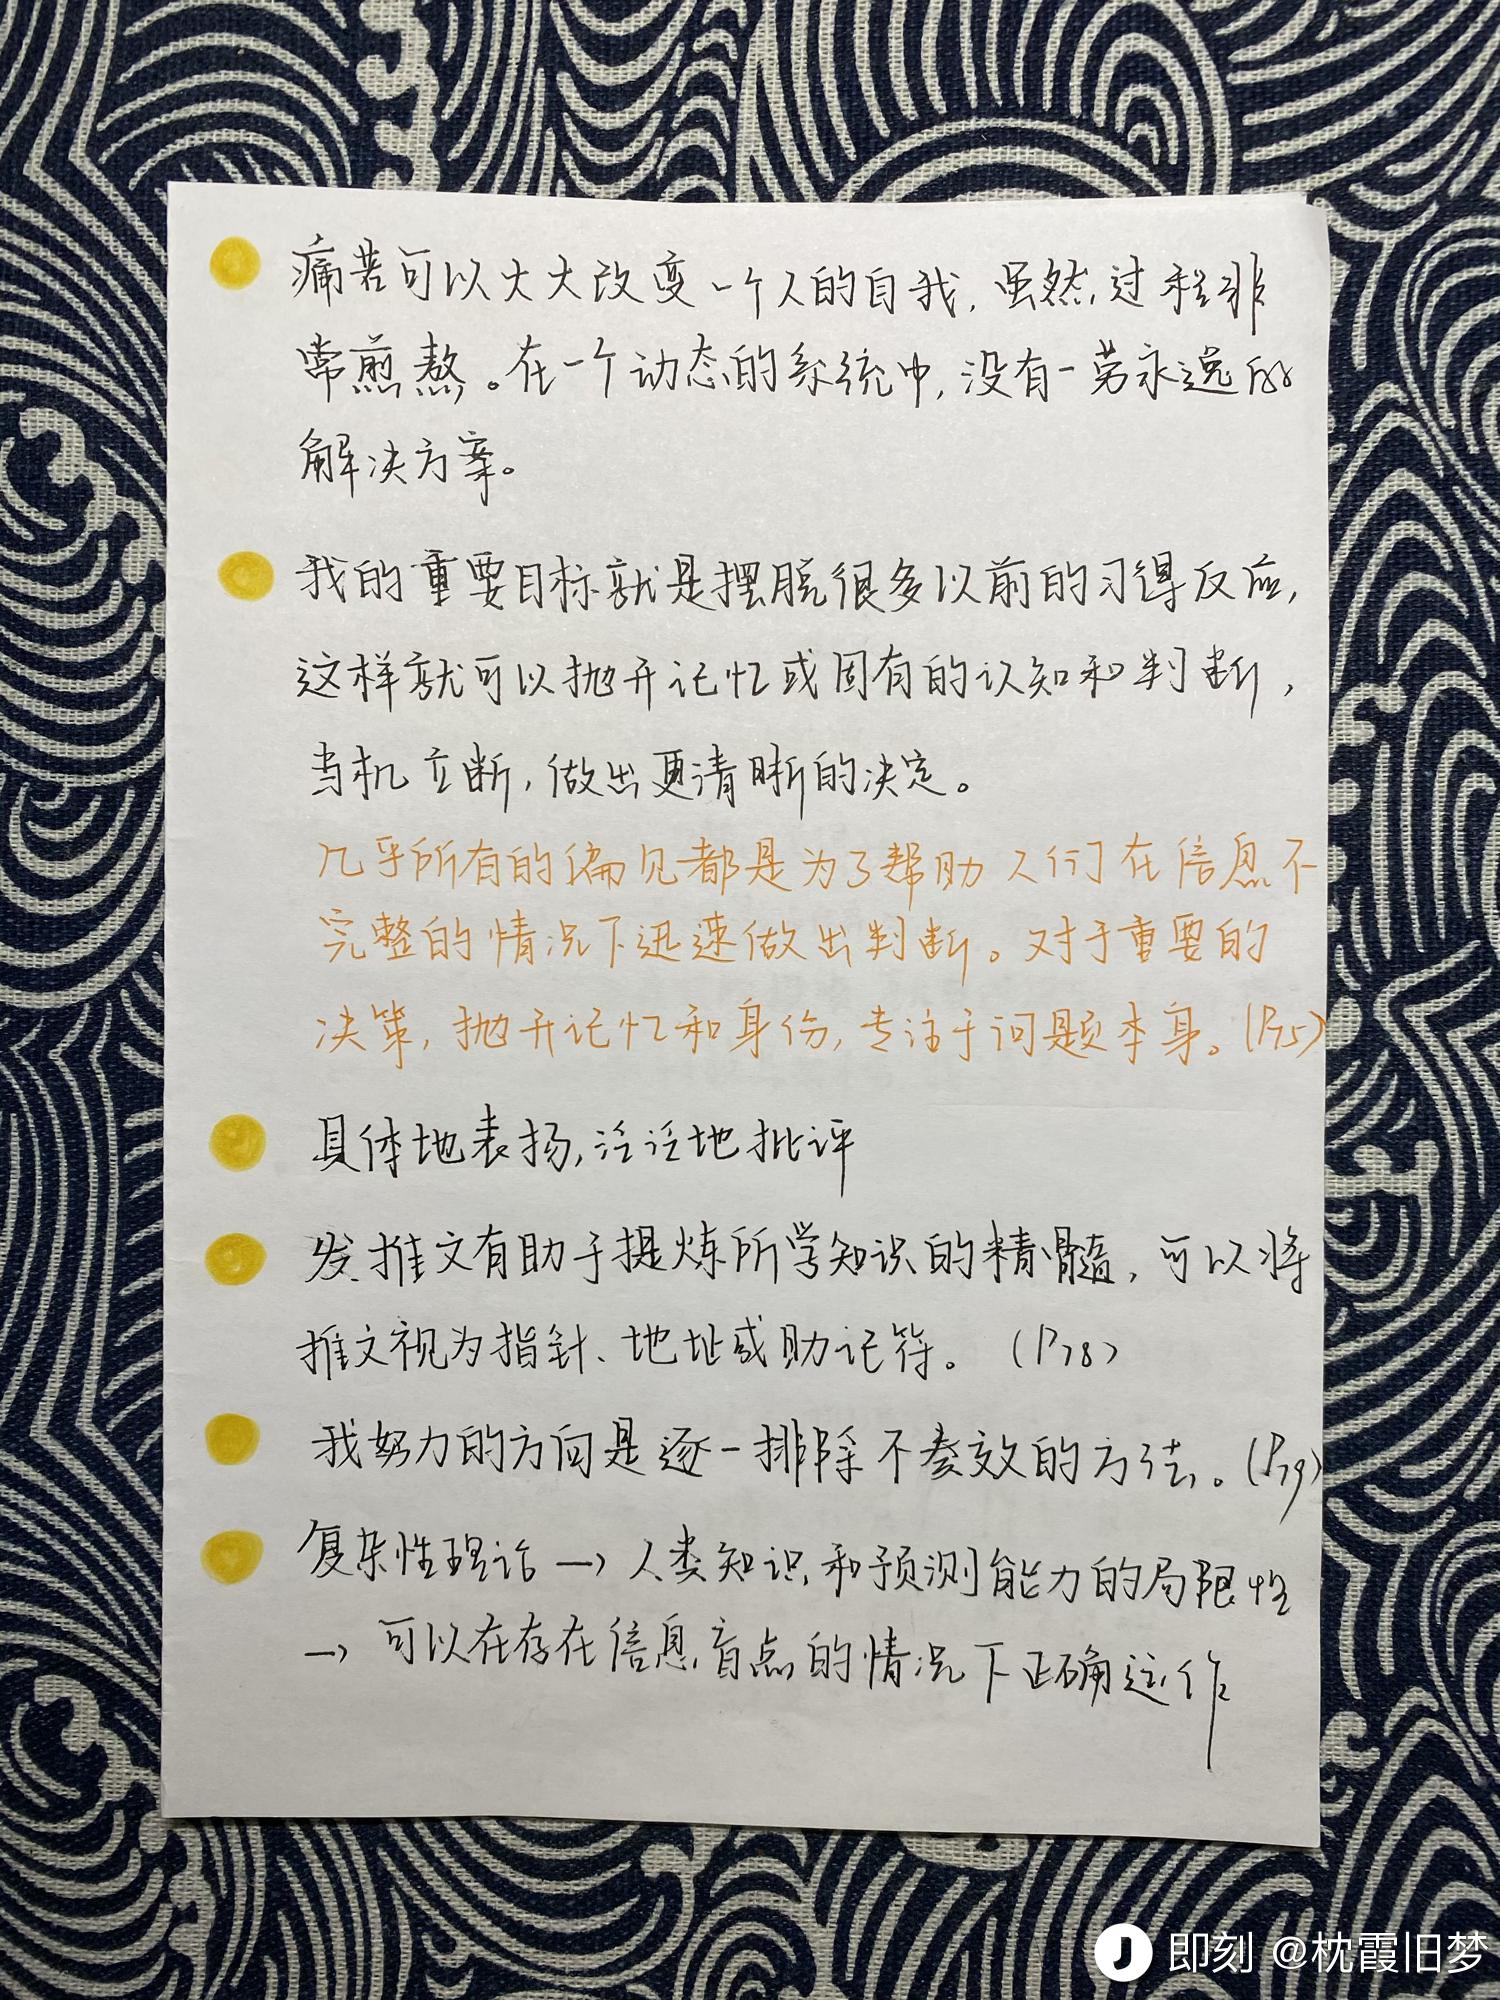 痛苦可以大大改变一个人的自我，虽然过程非
常煎熬。在一个动态的系统中，没有一劳永逸的
解决方案。
我的重要目标就是摆脱很多以前的习得反应，
这样就可以抛开记忆或固有的认知和判断，
当机立断，做出更清晰的决定。
几乎所有的偏见都是为了帮助人们在信息不
完整的情况下迅速做出判断。对于重要的
决策，抛开记忆和身份，专注于问题本身。(P75)
具体地表扬，泛泛地批评
发推文有助于提炼所学知识的精髓，可以将
推文视为指针、地址或助记符。(P78)
我努力的方向是逐一排除不奏效的方法。(P79)
复杂性理论→人类知识和预测能力的局限性
→可以在存在信息盲点的情况下正确运作
即刻 @枕霞旧梦